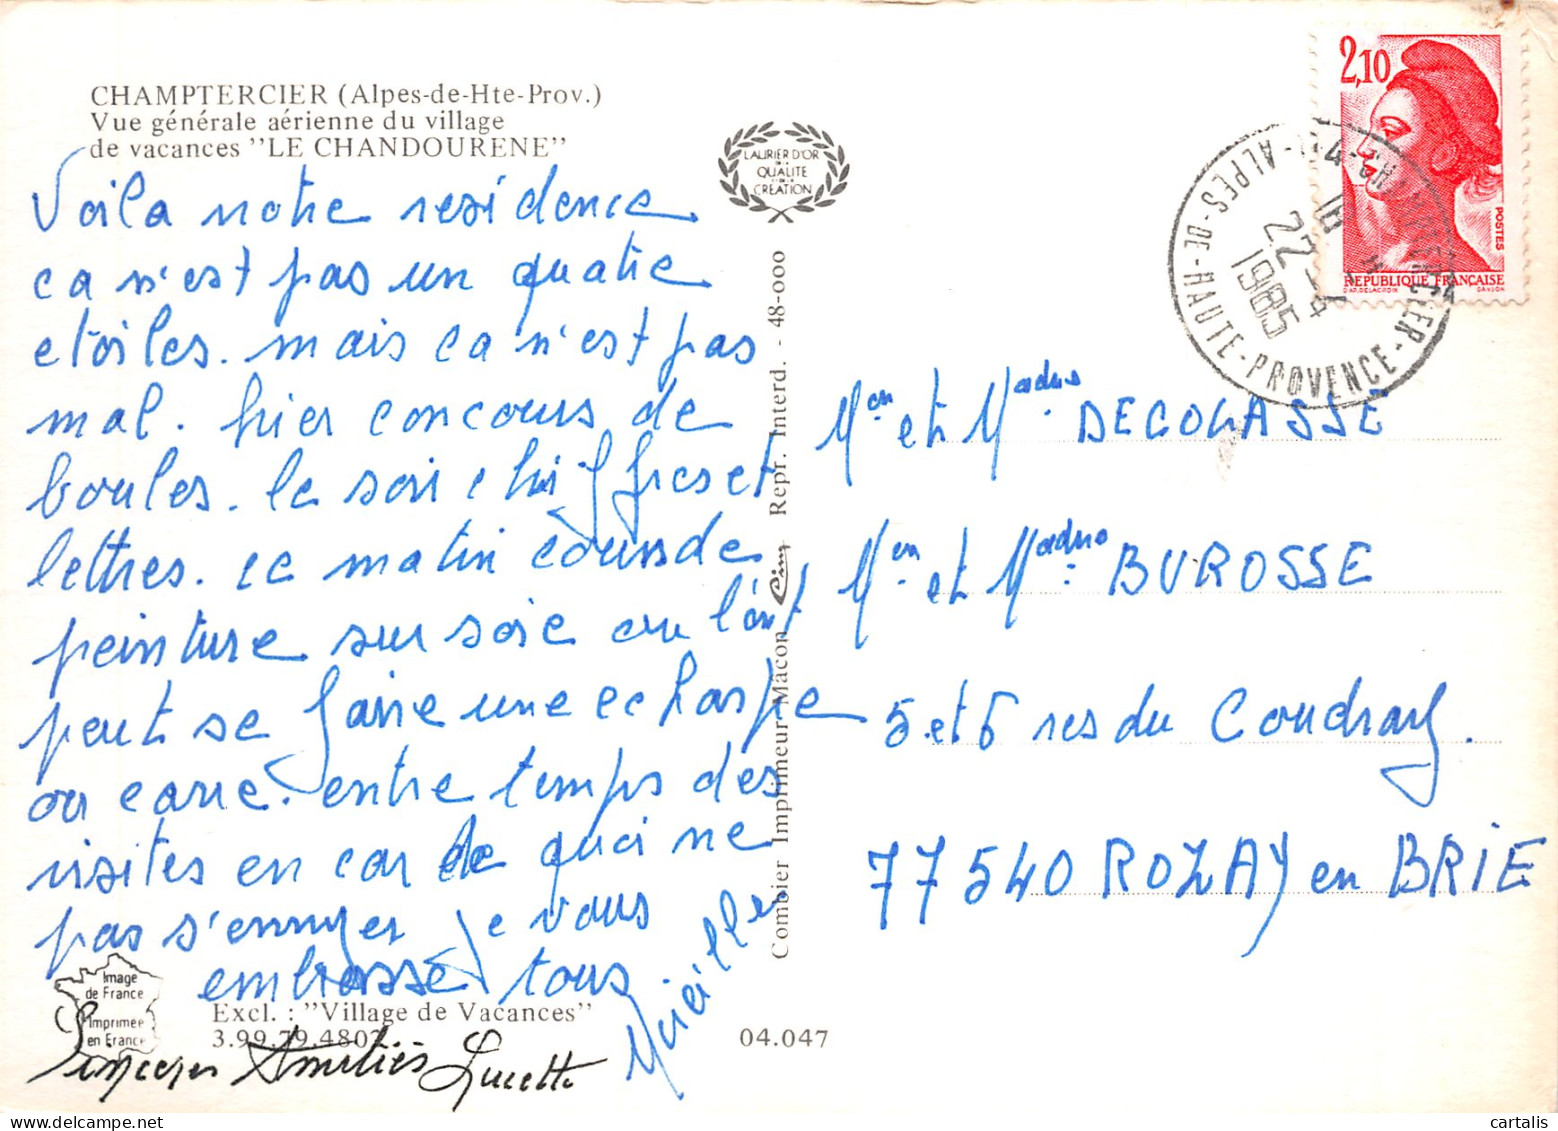 CHAMPTERCIER (Alpes-de-Hte-Prov.)
Vue générale aérienne du village
de vacances "LE CHANDOURENE"
Voila notre residence
ca n'est pas un quatre
etoiles. mais ca n'est pas
mal. hier concours de
boules. le soir chiffres et
lettres. ce matin cours de
peinture sur soie ou l'on
peut se faire une echarpe
ou carré. entre temps des
visites en car de quoi ne
pas s'ennuyer je vous
embrasse tous
Mireille
Sinceres Amitiés Lucette
Image
de France
Imprimée
en France
Excl. : "Village de Vacances"
3.99.79.4802
04.047
LAURIER D'OR
DE LA
QUALITE
ET DE LA
CREATION
Combier Imprimeur Mâcon Cim Repr. Interd. - 48-000
2,10
POSTES
REPUBLIQUE FRANÇAISE
D'AP. DELACROIX GANDON
04-CHAMPTERCIER
18 H
22-4
1985
ALPES-DE-HAUTE-PROVENCE
Mon et Madme DECOLASSE
Mon et Madme BUROSSE
5 et 6 res du Coudray.
77540 ROZAY en BRIE
cartalis